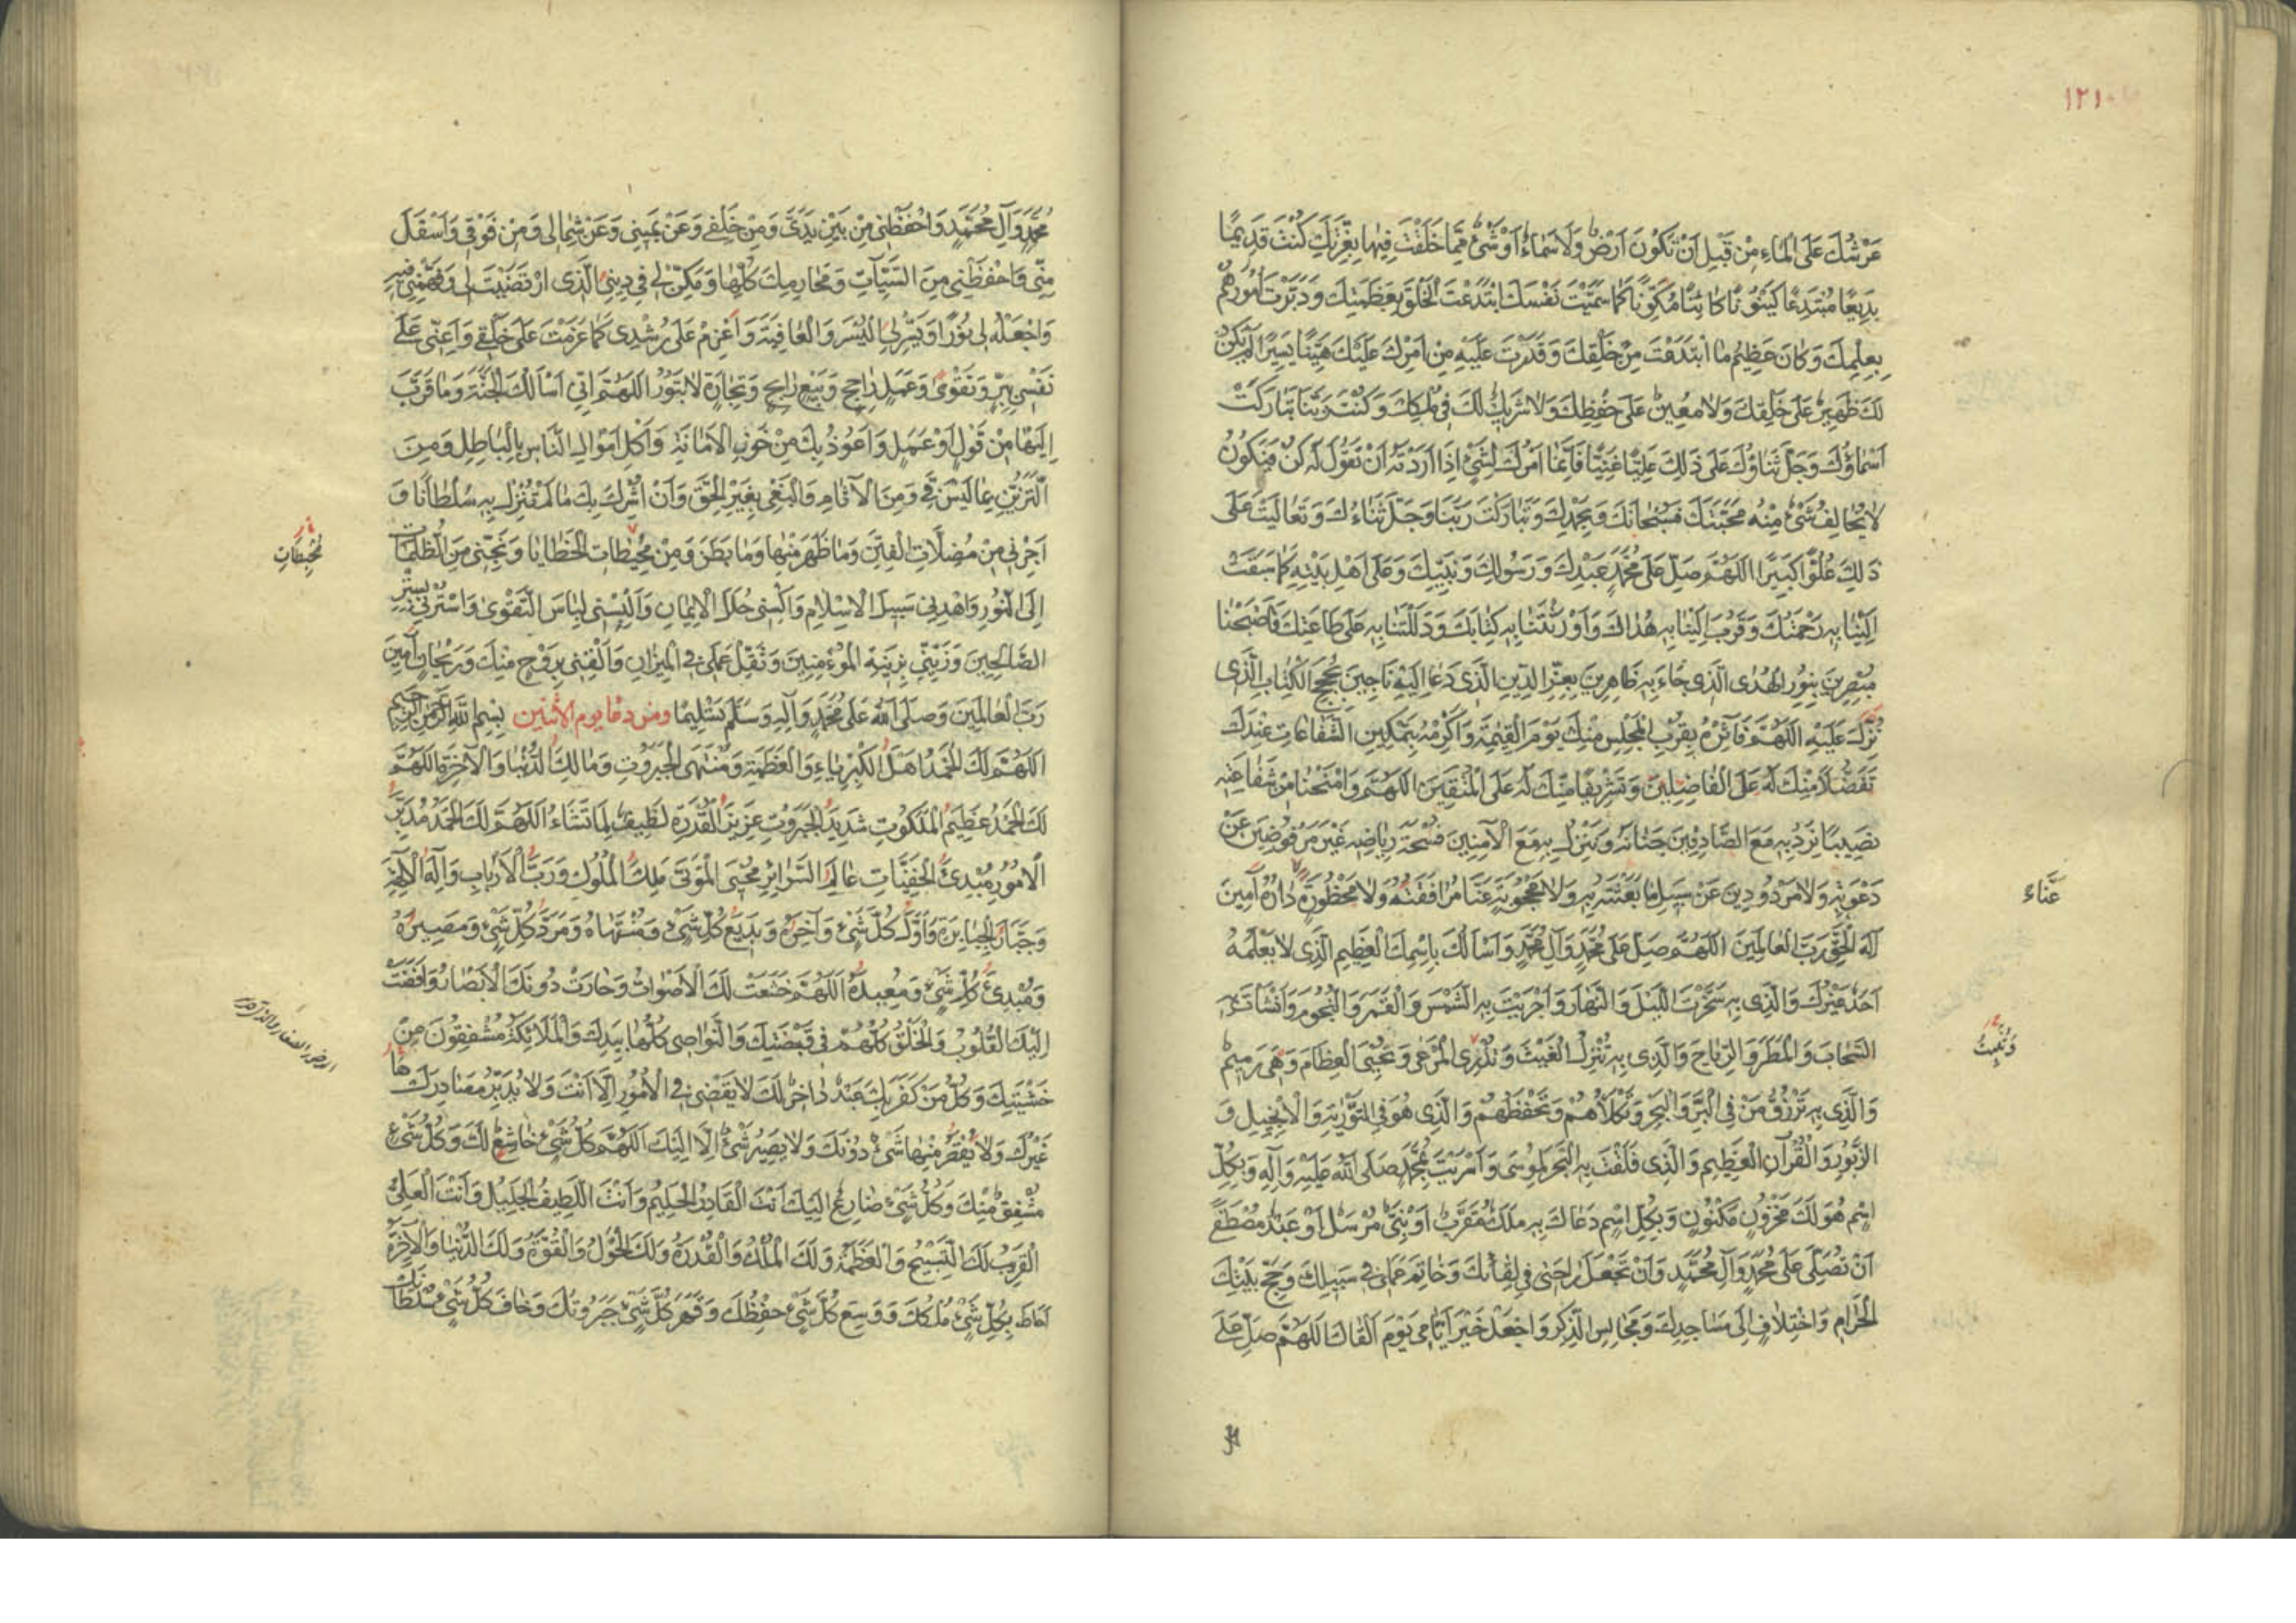 ١٢١
عَرْشُكَ عَلَى الْمَاءِ مِنْ قَبْلِ اَنْ تَكُونَ اَرْضٌ وَلَا سَمَاءٌ اَوْ شَيْءٌ مِمَّا خَلَقْتَ فِيهَا بِعِزَّتِكَ كُنْتَ قَدِيمًا
بَدِيعًا مُبْتَدِعًا كَيْنُونًا كَائِنًا مُكَوِّنًا كَمَا سَمَّيْتَ نَفْسَكَ ابْتَدَعْتَ الْخَلْقَ بِعَظَمَتِكَ وَدَبَّرْتَ اُمُورَهُمْ
بِعِلْمِكَ وَكَانَ عَظِيمُ مَا ابْتَدَعْتَ مِنْ خَلْقِكَ وَقَدَّرْتَ عَلَيْهِ مِنْ اَمْرِكَ عَلَيْكَ هَيِّنًا يَسِيرًا لَمْ يَكُنْ
لَكَ ظَهِيرٌ عَلَى خَلْقِكَ وَلَا مُعِينٌ عَلَى حِفْظِكَ وَلَا شَرِيكٌ لَكَ فِي مُلْكِكَ وَكُنْتَ رَبَّنَا تَبَارَكَتْ
اَسْمَاؤُكَ وَجَلَّ ثَنَاؤُكَ عَلَى ذَلِكَ عَلِيًّا غَنِيًّا فَاِنَّمَا اَمْرُكَ لِشَيْءٍ اِذَا اَرَدْتَهُ اَنْ تَقُولَ لَهُ كُنْ فَيَكُونُ
لَا يُخَالِفُ شَيْءٌ مِنْهُ مَحَبَّتَكَ فَسُبْحَانَكَ وَبِحَمْدِكَ وَتَبَارَكْتَ رَبَّنَا وَجَلَّ ثَنَاءُكَ وَتَعَالَيْتَ عَلَى
ذَلِكَ عُلُوًّا كَبِيرًا اَللَّهُمَّ صَلِّ عَلَى مُحَمَّدٍ عَبْدِكَ وَرَسُولِكَ وَنَبِيِّكَ وَعَلَى اَهْلِ بَيْتِهِ كَمَا سَبَقَتْ
اِلَيْنَا بِهِ رَحْمَتُكَ وَقَرُبَ اِلَيْنَا بِهِ هُدَاكَ وَاَوْرَثْتَنَا بِهِ كِتَابَكَ وَدَلَلْتَنَا بِهِ عَلَى طَاعَتِكَ فَاَصْبَحْنَا
مُبْصِرِينَ بِنُورِ الْهُدَى الَّذِي جَاءَ بِهِ ظَاهِرِينَ بِعِزِّ الدِّينِ الَّذِي دَعَا اِلَيْهِ نَاجِينَ بِحُجَجِ الْكِتَابِ الَّذِي
نُزِّلَ عَلَيْهِ اَللَّهُمَّ فَآثِرْهُ بِقُرْبِ الْمَجْلِسِ مِنْكَ يَوْمَ الْقِيمَةِ وَاَكْرِمْهُ بِتَمْكِينِ الشَّفَاعَاتِ عِنْدَكَ
تَفَضُّلًا مِنْكَ لَهُ عَلَى الْفَاضِلِينَ وَتَشْرِيفًا مِنْكَ لَهُ عَلَى الْمُتَّقِينَ اَللَّهُمَّ وَامْنَحْنَا مِنْ شَفَاعَتِهِ
نَصِيبًا نَرِدُ بِهِ مَعَ الصَّادِقِينَ جَنَانَهُ وَنَنْزِلُ بِهِ مَعَ الْآمِنِينَ فُسْحَةَ رِيَاضِهِ غَيْرَ مَرْفُوضِينَ عَنْ
دَعْوَتِهِ وَلَا مَرْدُودِينَ عَنْ سَبِيلِ مَا بَعَثْتَهُ بِهِ وَلَا مَحْجُوبَةٍ عَنَّا مُرَافَقَتُهُ وَلَا مَحْظُورَةٍ دَارُهُ آمِينَ
عَنَّاء
اِلَهَ الْحَقِّ رَبَّ الْعَالَمِينَ اَللَّهُمَّ صَلِّ عَلَى مُحَمَّدٍ وَآلِ مُحَمَّدٍ وَاَسْاَلُكَ بِاسْمِكَ الْعَظِيمِ الَّذِي لَا يَعْلَمُهُ
اَحَدٌ غَيْرُكَ وَالَّذِي بِهِ سَخَّرْتَ اللَّيْلَ وَالنَّهَارَ وَاَجْرَيْتَ بِهِ الشَّمْسَ وَالْقَمَرَ وَالنُّجُومَ وَاَنْشَاْتَ بِهِ
السَّحَابَ وَالْمَطَرَ وَالرِّيَاحَ وَالَّذِي بِهِ تُنْزِلُ الْغَيْثَ وَتَذْرَى الْمَرْعَى وَتُحْيِي الْعِظَامَ وَهِيَ رَمِيمٌ
وَتُنْبِتُ
وَالَّذِي بِهِ تَرْزُقُ مَنْ فِي الْبَرِّ وَالْبَحْرِ وَتَكْلَاُهُمْ وَتَحْفَظُهُمْ وَالَّذِي هُوَ فِي التَّوْرٰيةِ وَالْاِنْجِيلِ وَ
الزَّبُورِ وَالْقُرْآنِ الْعَظِيمِ وَالَّذِي فَلَقْتَ بِهِ الْبَحْرَ لِمُوسَى وَاَسْرَيْتَ بِمُحَمَّدٍ صَلَّى اللّٰهُ عَلَيْهِ وَآلِهِ وَبِكُلِّ
اِسْمٍ هُوَ لَكَ مَخْزُونٍ مَكْنُونٍ وَبِكُلِّ اِسْمٍ دَعَاكَ بِهِ مَلَكٌ مُقَرَّبٌ اَوْ نَبِيٌّ مُرْسَلٌ اَوْ عَبْدٌ مُصْطَفًى
اَنْ تُصَلِّيَ عَلَى مُحَمَّدٍ وَآلِ مُحَمَّدٍ وَاَنْ تَجْعَلَ رَاحَتِي فِي لِقَائِكَ وَخَاتِمَ عَمَلِي فِي سَبِيلِكَ وَحَجِّ بَيْتِكَ
الْحَرَامِ وَاخْتِلَافٍ اِلَى مَسَاجِدِكَ وَمَجَالِسِ الذِّكْرِ وَاجْعَلْ خَيْرَ اَيَّامِي يَوْمَ اَلْقَاكَ اَللَّهُمَّ صَلِّ عَلَى
مُحَمَّدٍ وَآلِ مُحَمَّدٍ وَاحْفَظْنِي مِنْ بَيْنِ يَدَيَّ وَمِنْ خَلْفِي وَعَنْ يَمِينِي وَعَنْ شِمَالِي وَمِنْ فَوْقِي وَاَسْفَلَ
مِنِّي وَاحْفَظْنِي مِنَ السَّيِّئَاتِ وَمَحَارِمِكَ كُلِّهَا وَمَكِّنْ لِي فِي دِينِيَ الَّذِي ارْتَضَيْتَ لِي وَفَهِّمْنِي فِيهِ
وَاجْعَلْهُ لِي نُورًا وَيَسِّرْ لِيَ الْيُسْرَ وَالْعَافِيَةَ وَاَعْزِمْ عَلَى رُشْدِي كَمَا عَزَمْتَ عَلَى خَلْقِي وَاَعِنِّي عَلَى
نَفْسِي بِبِرٍّ وَتَقْوَى وَعَمَلٍ رَاجِحٍ وَبَيْعٍ رَابِحٍ وَتِجَارَةٍ لَا تَبُورُ اَللَّهُمَّ اِنِّي اَسْاَلُكَ الْجَنَّةَ وَمَا قَرَّبَ
اِلَيْهَا مِنْ قَوْلٍ اَوْ عَمَلٍ وَاَعُوذُ بِكَ مِنْ خَوْنِ الْاَمَانَةِ وَاَكْلِ اَمْوَالِ النَّاسِ بِالْبَاطِلِ وَمِنَ
التَّزَيُّنِ بِمَا لَيْسَ فِيَّ وَمِنَ الْآثَامِ وَالْبَغْيِ بِغَيْرِ الْحَقِّ وَاَنْ اُشْرِكَ بِكَ مَا لَمْ تُنَزِّلْ بِهِ سُلْطَانًا وَ
اَجِرْنِي مِنْ مُضِلَّاتِ الْفِتَنِ وَمَا ظَهَرَ مِنْهَا وَمَا بَطَنَ وَمِنْ مُحِيطَاتِ الْخَطَايَا وَنَجِّنِي مِنَ الظُّلُمَاتِ
مُحْبِطَاتِ
اِلَى النُّورِ وَاهْدِنِي سَبِيلَ الْاِسْلَامِ وَاكْسُنِي حُلَلَ الْاِيمَانِ وَاَلْبِسْنِي لِبَاسَ التَّقْوَى وَاسْتُرْنِي بِسِتْرِ
الصَّالِحِينَ وَزَيِّنِّي بِزِينَةِ الْمُؤْمِنِينَ وَثَقِّلْ عَمَلِي فِي الْمِيزَانِ وَالْقَنِي بِرَوْحٍ مِنْكَ وَرَيْحَانٍ آمِينَ
رَبَّ الْعَالَمِينَ وَصَلَّى اللّٰهُ عَلَى مُحَمَّدٍ وَآلِهِ وَسَلَّمَ تَسْلِيمًا ومن دعا يوم الاثنين بِسْمِ اللّٰهِ الرَّحْمٰنِ الرَّحِيمِ
اَللَّهُمَّ لَكَ الْحَمْدُ اَهْلَ الْكِبْرِيَاءِ وَالْعَظَمَةِ وَمُنْتَهَى الْجَبَرُوتِ وَمَالِكَ الدُّنْيَا وَالْآخِرَةِ اَللَّهُمَّ
لَكَ الْحَمْدُ عَظِيمَ الْمَلَكُوتِ شَدِيدَ الْجَبَرُوتِ عَزِيزَ الْقُدْرَةِ لَطِيفٌ لِمَا تَشَاءُ اَللَّهُمَّ لَكَ الْحَمْدُ مُدَبِّرَ
الْاُمُورِ مُبْدِئَ الْخَفِيَّاتِ عَالِمَ السَّرَائِرِ مُحْيِيَ الْمَوْتَى مَلِكَ الْمُلُوكِ وَرَبَّ الْاَرْبَابِ وَاِلَهَ الْآلِهَةِ
وَجَبَّارَ الْجَبَابِرَةِ وَاَوَّلَ كُلِّ شَيْءٍ وَآخِرَهُ وَبَدِيعَ كُلِّ شَيْءٍ وَمُنْتَهَاهُ وَمَرَدَّ كُلِّ شَيْءٍ وَمَصِيرَهُ
وَمُبْدِئَ كُلِّ شَيْءٍ وَمُعِيدَهُ اَللَّهُمَّ خَشَعَتْ لَكَ الْاَصْوَاتُ وَحَارَتْ دُونَكَ الْاَبْصَارُ وَاَفْضَتْ
اِلَيْكَ الْقُلُوبُ وَالْخَلْقُ كُلُّهُمْ فِي قَبْضَتِكَ وَالنَّوَاصِي كُلُّهَا بِيَدِكَ وَالْمَلَائِكَةُ مُشْفِقُونَ مِنْ
خَشْيَتِكَ وَكُلُّ مَنْ كَفَرَ بِكَ عَبْدٌ دَاخِرٌ لَكَ لَا يَقْضِي فِي الْاُمُورِ اِلَّا اَنْتَ وَلَا يُدَبِّرُ مَصَادِرَهَا
غَيْرُكَ وَلَا يَقْصُرُ مِنْهَا شَيْءٌ دُونَكَ وَلَا يَصِيرُ شَيْءٌ اِلَّا اِلَيْكَ اَللَّهُمَّ كُلُّ شَيْءٍ خَاشِعٌ لَكَ وَكُلُّ شَيْءٍ
مُشْفِقٌ مِنْكَ وَكُلُّ شَيْءٍ ضَارِعٌ اِلَيْكَ اَنْتَ الْقَادِرُ الْحَلِيمُ وَاَنْتَ اللَّطِيفُ الْجَلِيلُ وَاَنْتَ الْعَلِيُّ
الْقَرِيبُ لَكَ التَّسْبِيحُ وَالْعَظَمَةُ وَلَكَ الْمُلْكُ وَالْقُدْرَةُ وَلَكَ الْحَوْلُ وَالْقُوَّةُ وَلَكَ الدُّنْيَا وَالْآخِرَةُ
اَحَاطَ بِكُلِّ شَيْءٍ مُلْكُكَ وَوَسِعَ كُلَّ شَيْءٍ حِفْظُكَ وَقَهَرَ كُلَّ شَيْءٍ جَبَرُوتُكَ وَخَافَ كُلُّ شَيْءٍ سُلْطَانَكَ